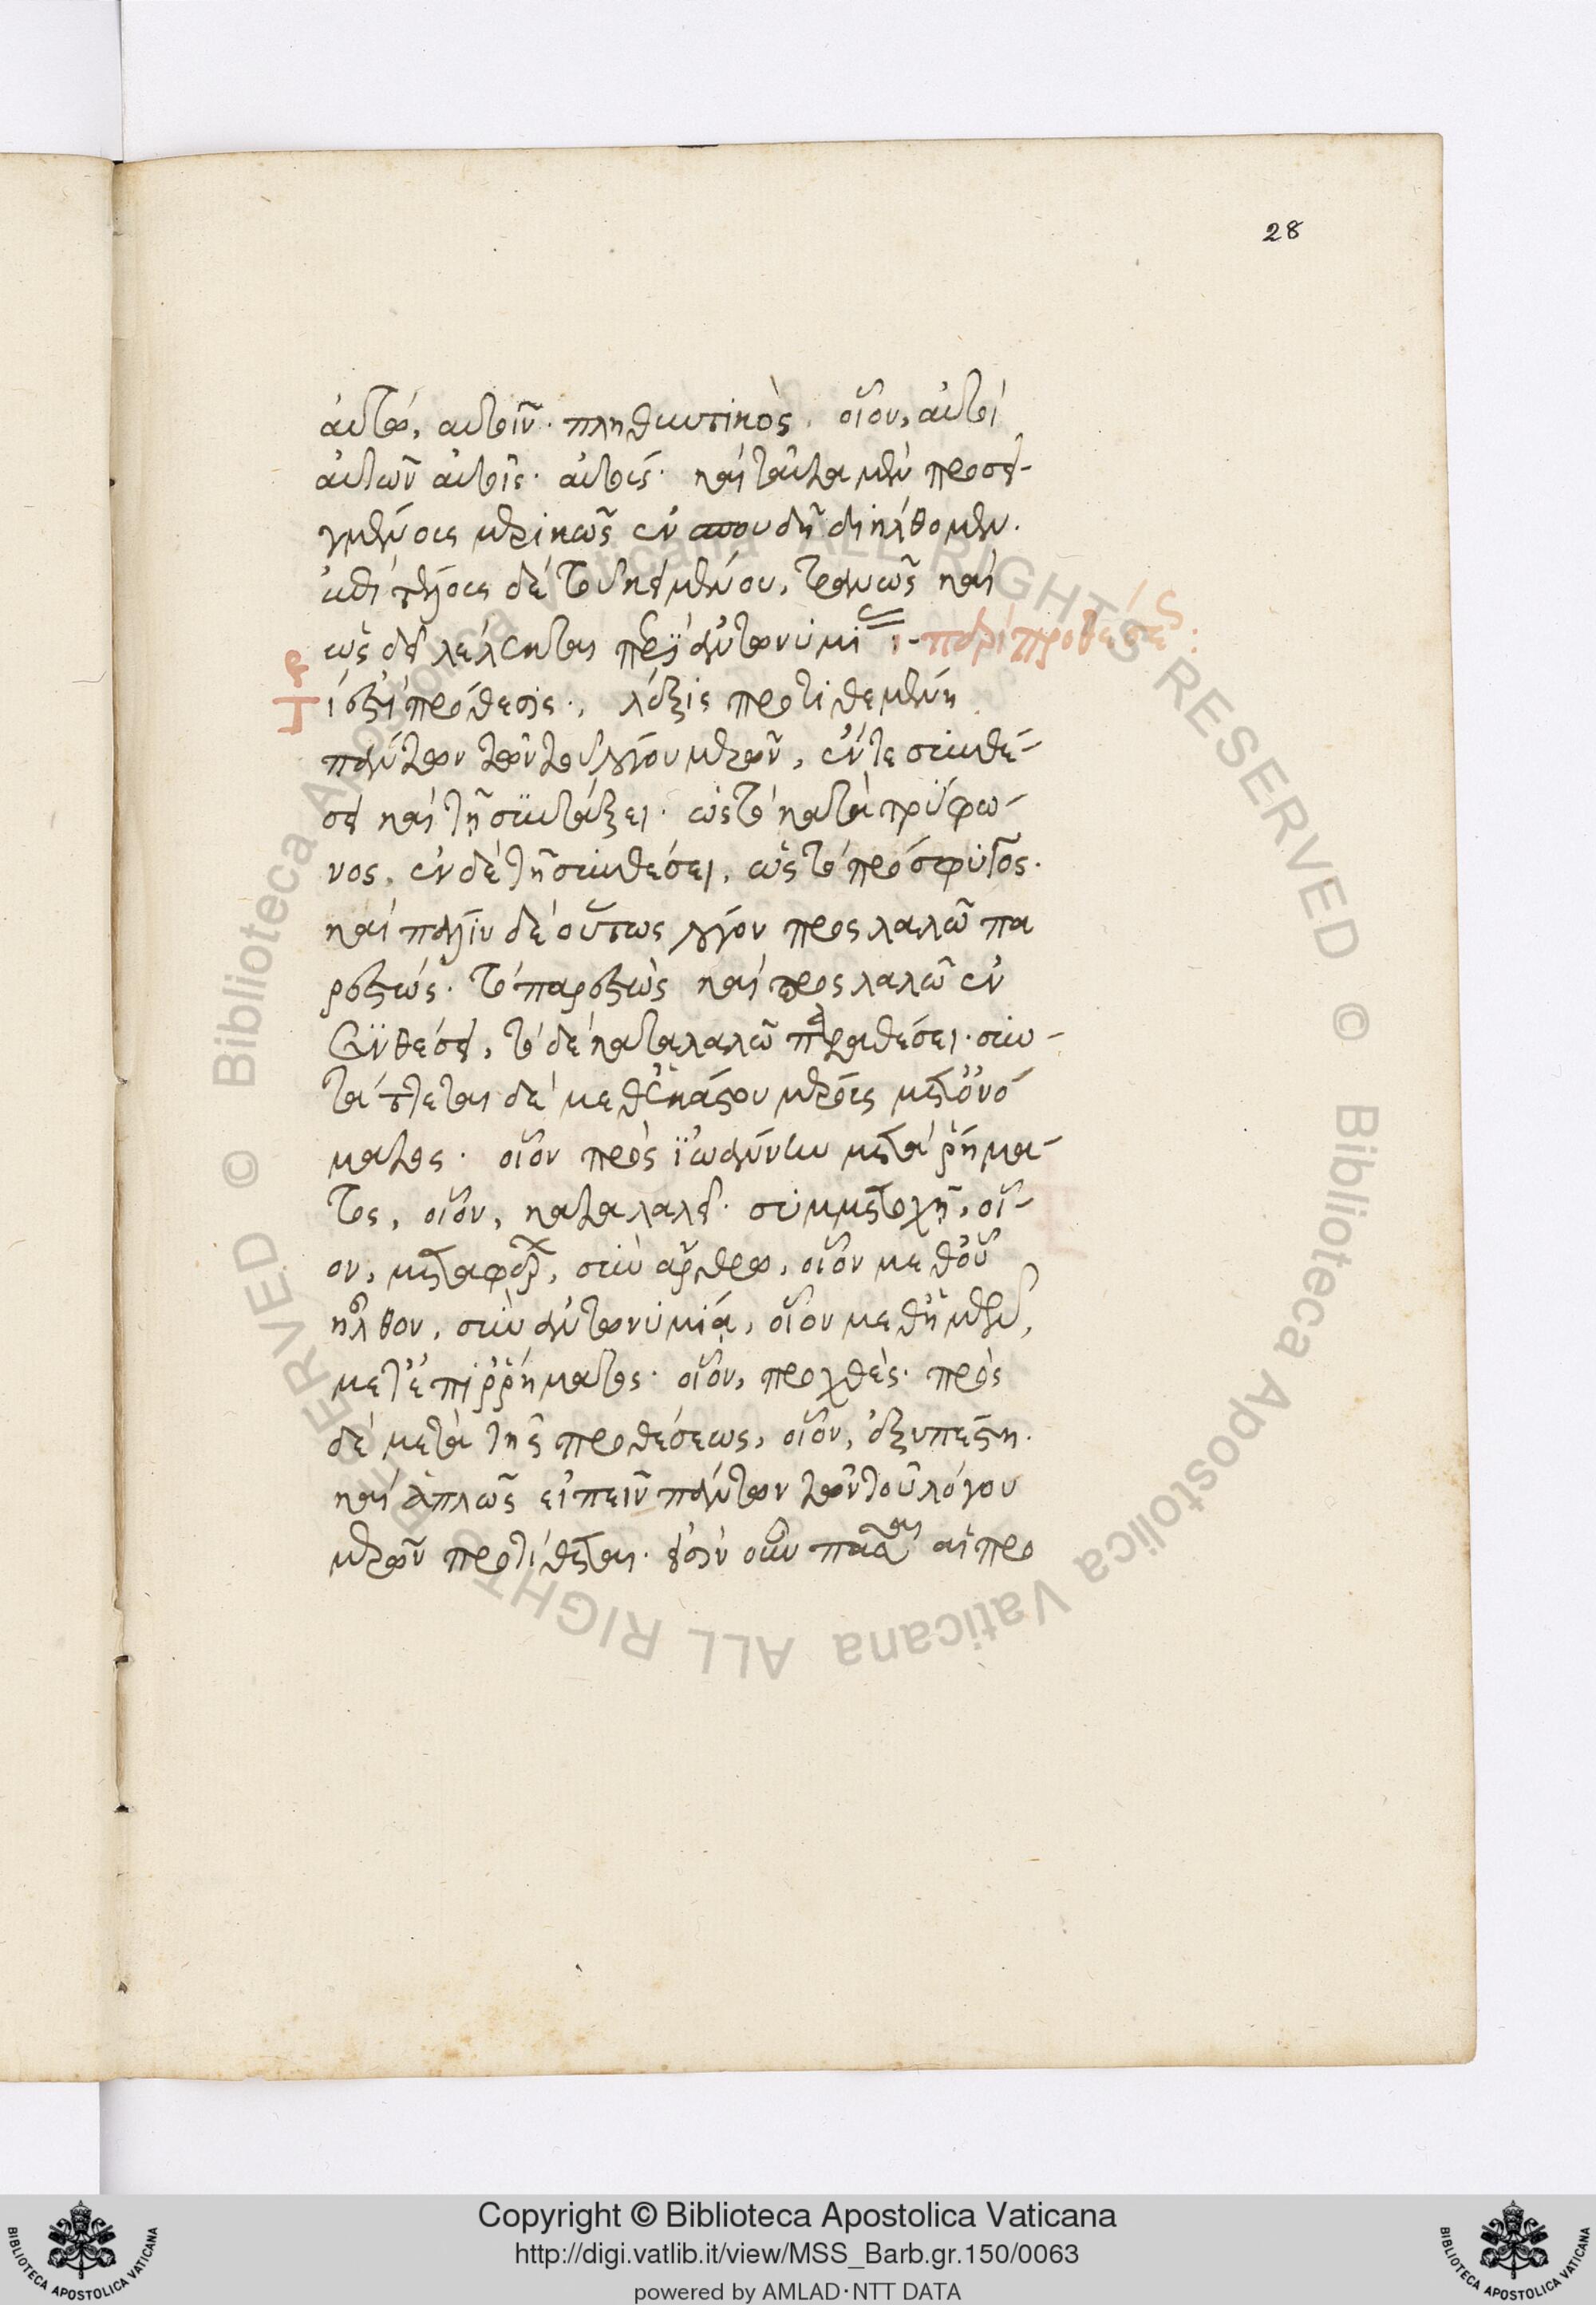 28
αὐτώ, αὐτοῖν. πληθυντικὸς. οἷον, αὐτοί
αὐτῶν αὐτοῖς. αὐτούς. καὶ ταῦτα μὲν
μετρικῶς ἐν σπουδῇ διήλθομεν.
δὲ τοῦ κειμένου, καὶ
ὡς δεῖ λέλεκται περὶ ἀντωνυμι περὶ προθέσεως:
Τί ἐστι πρόθεσις., λέξις προτιθεμένη
πάντων τῶν τοῦ λόγου μερῶν, ἔν τε συνθέ-
σει καὶ τῇ συντάξει. ὡς τὸ κατὰ τρύφω-
νος, ἐν δὲ τῇ συνθέσει, ὡς τὸ πρόσφυγος.
καὶ πάλιν δὲ οὕτως λόγον προς λαλῶ πα
ροξέως. τὸ παροξέως καὶ προς λαλῶ ἐν
συνθέσει, τὸ δὲ καταλαλῶ παραθέσει. συν-
τάττεται δὲ μεθ' ἑκάστου μέρους μετ' ὀνό
ματος. οἷον πρὸς ἰωάννην μετὰ ῥήμα-
τος, οἷον, καταλαλεῖ. σὺν μετοχῇ, οἷ-
ον, μεταφέρων, σὺν ἄρθρω, οἷον μεθ' οὗ
ἦλθον, σὺν ἀντωνυμία, οἷον μεθ' ἡμῶν,
μετ' ἐπιρρήματος. οἷον, προχθὲς. πρὸς
δὲ μετὰ τῆς προθέσεως, οἷον,
καὶ ἁπλῶς εἰπεῖν πάντων τῶν τοῦ λόγου
μερῶν προτίθεται. εἰσὶν οὖν πᾶσαι αἱ προ
Copyright © Biblioteca Apostolica Vaticana
http://digi.vatlib.it/view/MSS_Barb.gr.150/0063
powered by AMLAD·NTT DATA
BIBLIOTECA APOSTOLICA VATICANA
BIBLIOTECA APOSTOLICA VATICANA
© Biblioteca Apostolica Vaticana ALL RIGHTS RESERVED © Biblioteca Apostolica Vaticana ALL RIGHTS RESERVED